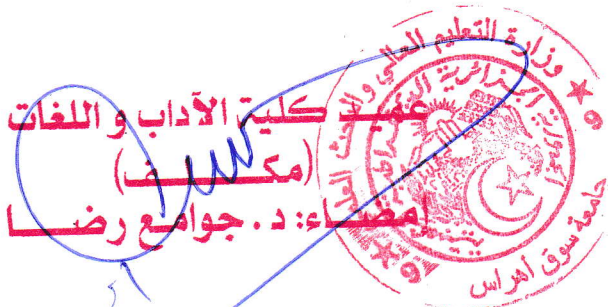 عميد كلية الآداب و اللغات
(مكلف)
إمضاء: د. جوامع رضا
وزارة التعليم العالي والبحث العلمي
الجمهورية الجزائرية الديمقراطية الشعبية
جامعة سوق أهراس